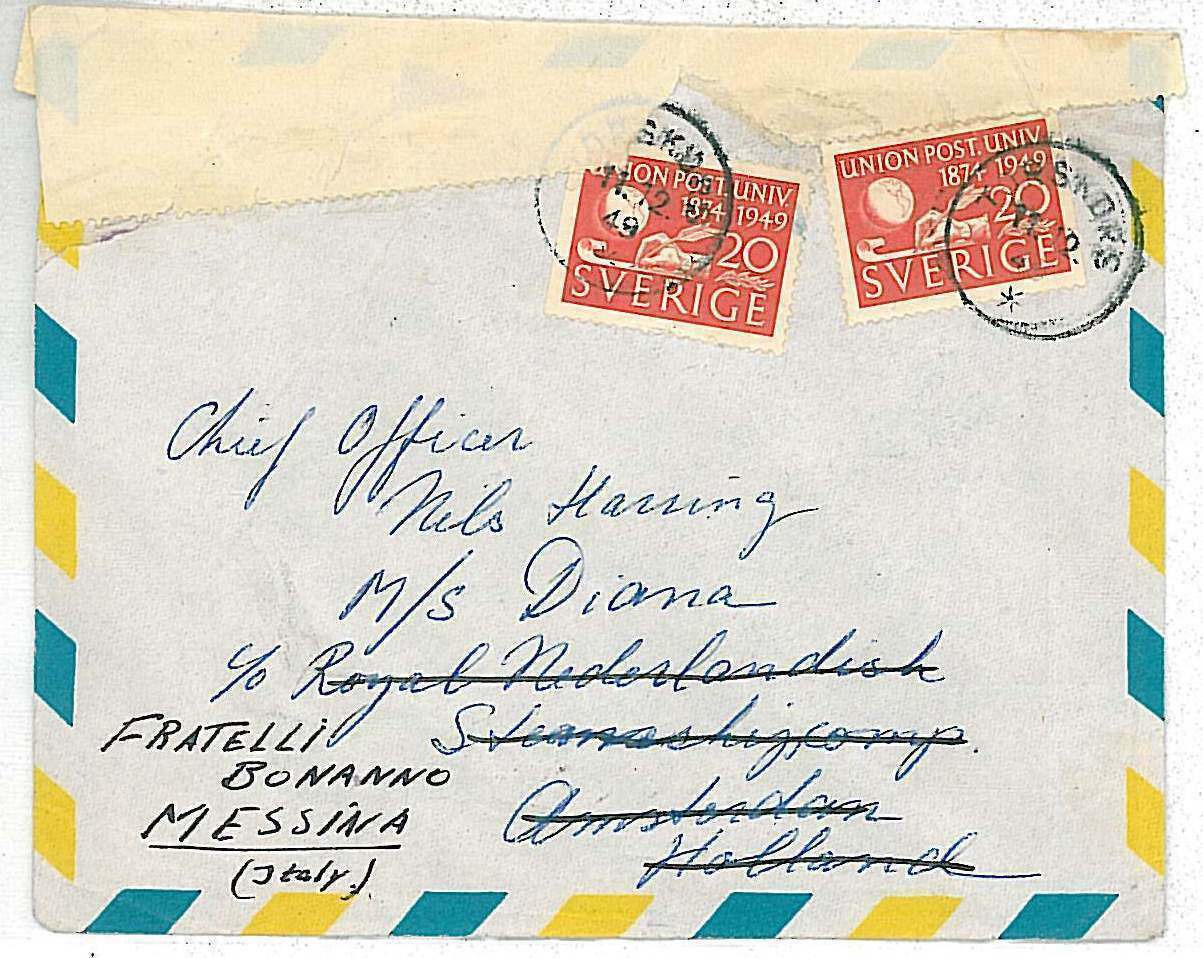 UNION POST. UNIV.
1874 1949
20
SVERIGE
UNION POST. UNIV.
1874 1949
20
SVERIGE
11.12.
49
Chief Officer
Nils Harring
M/s Diana
c/o Royal Nederlandish
Steamschipcomp.
Amsterdam
Holland
FRATELLI
BONANNO
MESSINA
(Italy.)